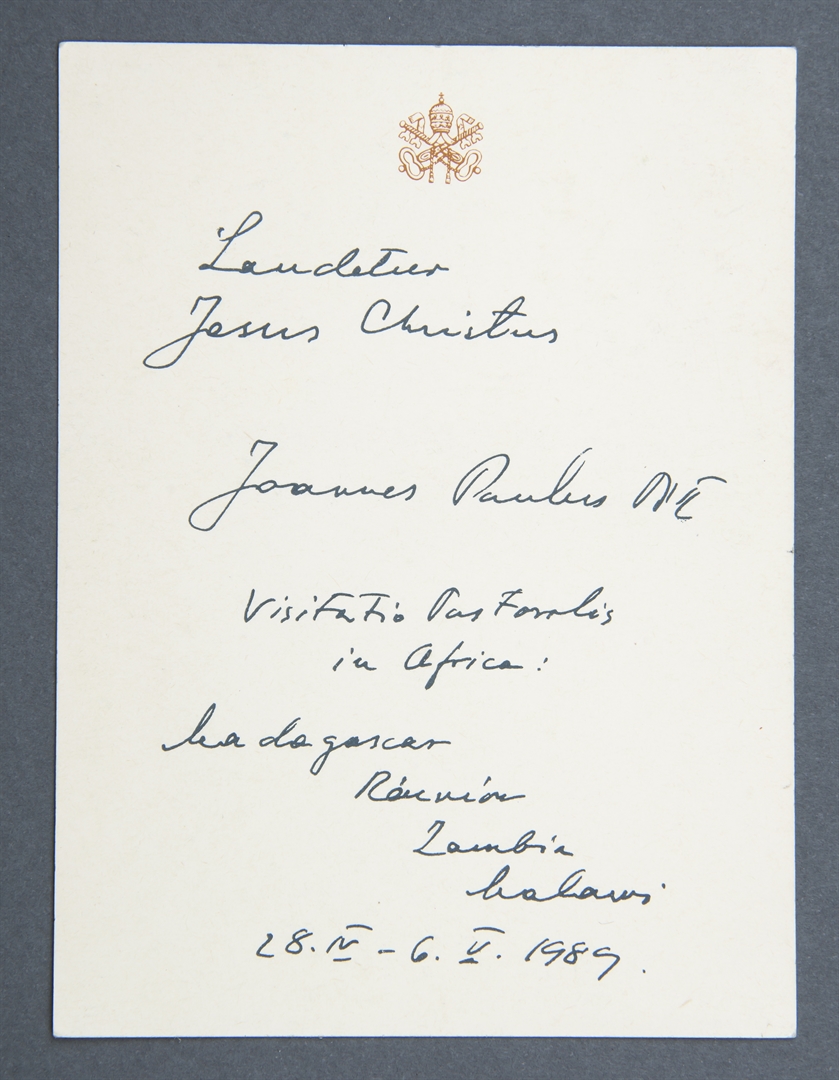 Laudetur
Jesus Christus
Joannes Paulus PP II
Visitatio Pastoralis
in Africa:
Madagascar
Réunion
Zambia
Malawi
28. IV – 6. V. 1989.